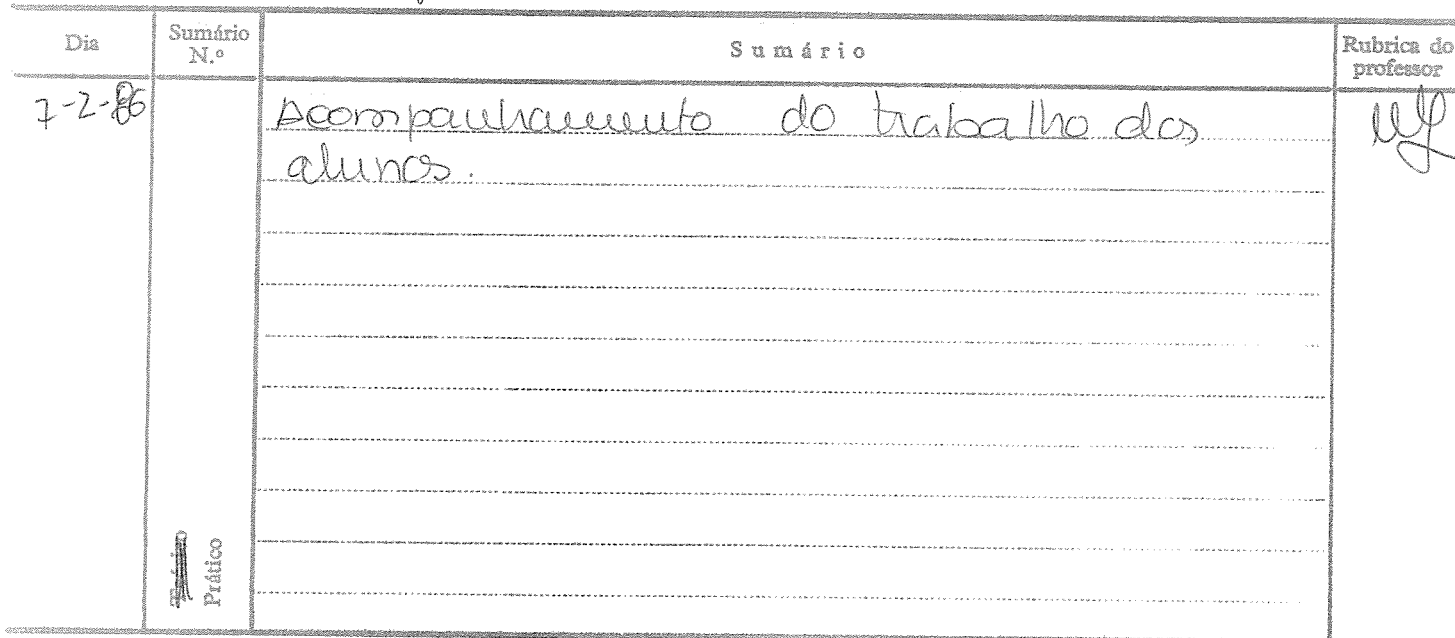 Dia
Sumário N.º
Sumário
Rubrica do professor
7-2-86
Acompanhamento do trabalho dos
alunos.
Prático